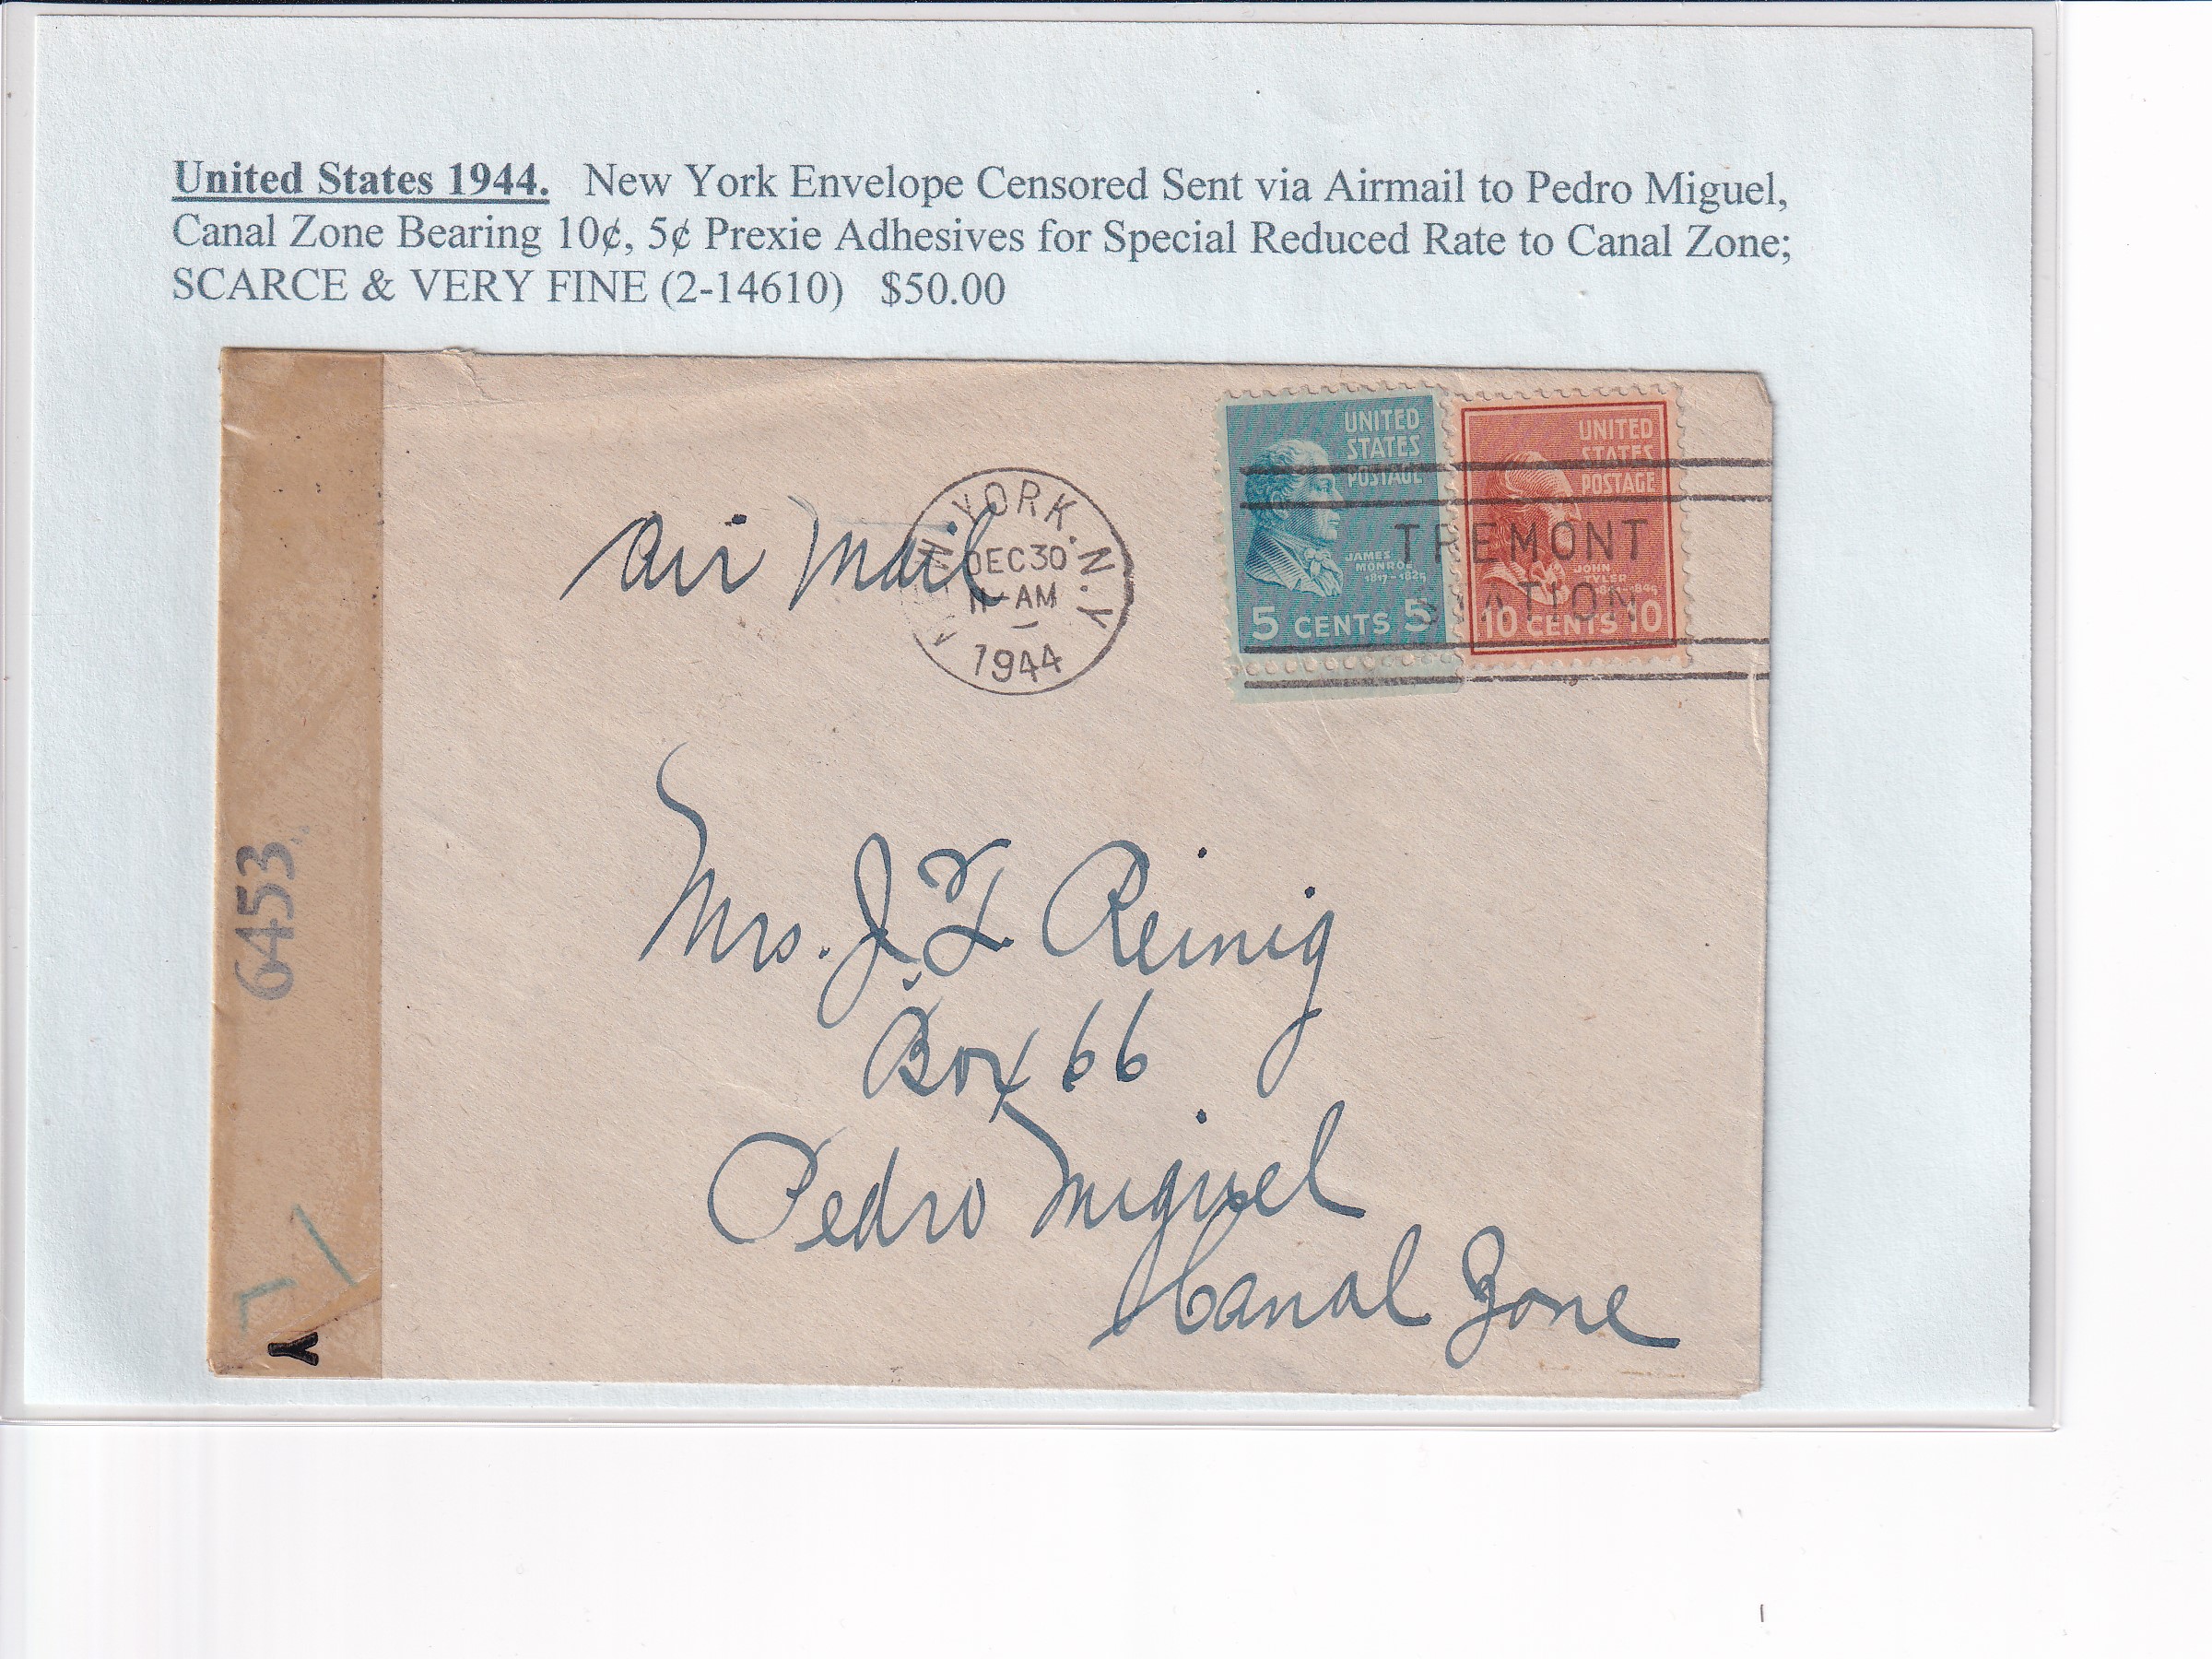 United States 1944. New York Envelope Censored Sent via Airmail to Pedro Miguel,
Canal Zone Bearing 10¢, 5¢ Prexie Adhesives for Special Reduced Rate to Canal Zone;
SCARCE & VERY FINE (2-14610) $50.00
UNITED
STATES
POSTAGE
JAMES
MONROE
1817-1825
5 CENTS 5
UNITED
STATES
POSTAGE
JOHN
TYLER
10 CENTS 10
TREMONT
STATION
YORK, N.Y.
DEC 30
11-AM
1944
Air Mail
Mrs. J. F. Reinig
Box 66
Pedro Miguel
Canal Zone
6453
Y